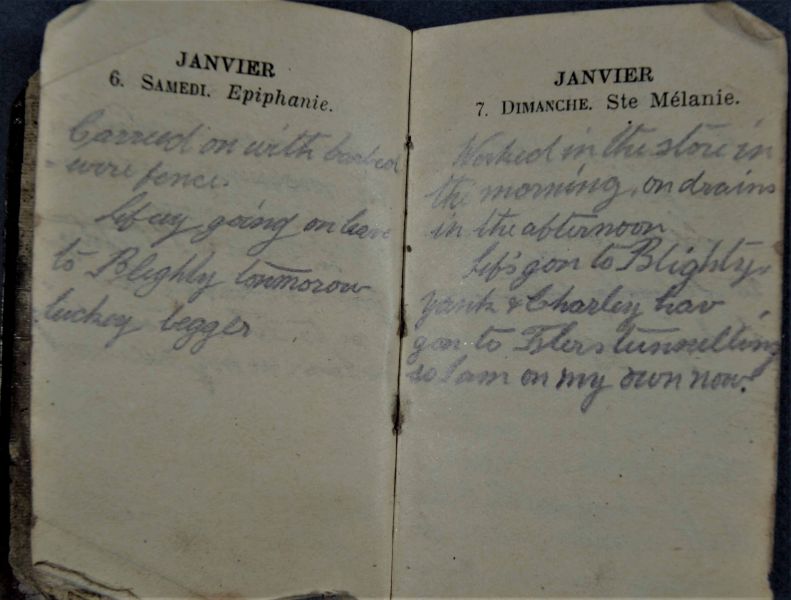 JANVIER
6. SAMEDI. Epiphanie.
Carried on with barbed
wire fence.
going on leave
to Blighty tommorow
luckey begger
JANVIER
7. DIMANCHE. Ste Mélanie.
Worked in the store in
the morning, on drains
in the afternoon
gon to Blighty,
Yank & Charley hav
gon to Flers tunnelling
so I am on my own now.